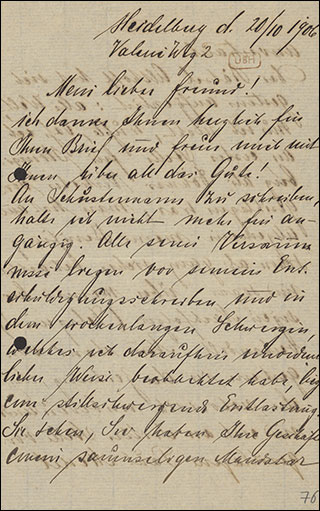 Heidelberg d. 20/10 1906
Valerieweg 2
HBU
Mein lieber Freund!
ich danke Ihnen herzlich für
Ihren Brief und freue mich mit
Ihnen über all das Gute!
An Schustermann zu schreiben,
halte ich nicht mehr für an-
gängig. Alle seine Versäum-
nisse liegen vor seinem Ent-
schuldigungsschreiben und in
dem wochenlangen Schweigen,
welches ich daraufhin
licher Weise beobachtet habe, liegt
eine stillschweigende Entlastung.
Sie sehen, Sie haben Ihre Geschäfte
einem saumseligen Mandatar
76